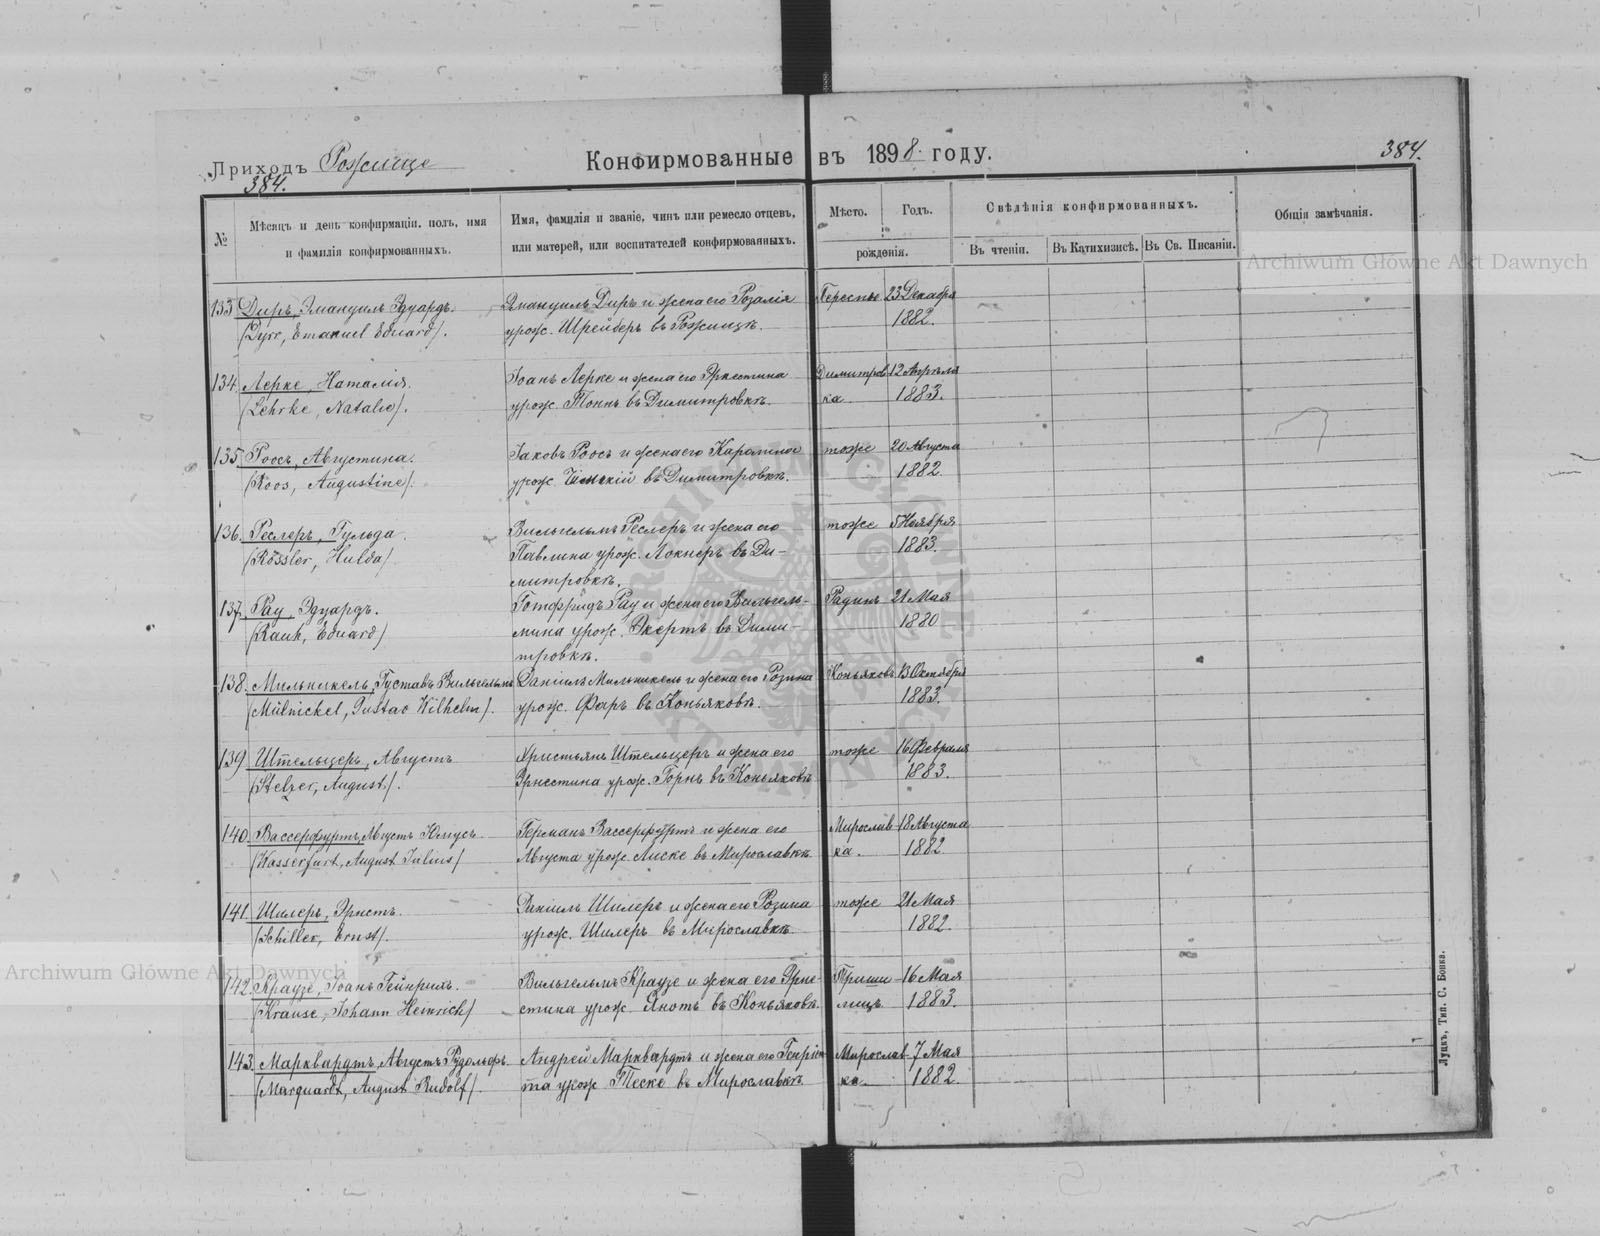 Приходъ Рожище
Конфирмованные въ 1898. году.
384.
384.
№
Мѣсяцъ и день конфирмаціи, полъ, имя
и фамилія конфирмованныхъ.
Имя, фамилія и званіе, чинъ или ремесло отцевъ,
или матерей, или воспитателей конфирмованныхъ.
Мѣсто.
Годъ.
рожденія.
Свѣдѣнія конфирмованныхъ.
Въ чтеніи.
Въ Катихизисѣ.
Въ Св. Писаніи.
Общія замѣчанія.
Archiwum Główne Akt Dawnych
133 Диръ, Эмануилъ Эдуардъ. Эмануилъ Диръ и жена его Розалія 23 Декабря
(Dyrr, Emanuel Eduard). урож. Шрейберъ въ Рожищѣ. 1882.
134. Лерке, Наталія. Іоанъ Лерке и жена его Эрнестина Димитров- 12 Апрѣля
(Lehrke, Natalie). урож. Тоннъ въ Димитровкѣ. ка. 1883.
135 Роосъ, Августина. Іаковъ Роосъ и жена его Каролина тоже 20 Августа
(Roos, Augustine). урож. въ Димитровкѣ. 1882.
136. Реслеръ, Гульда. Вильгельмъ Реслеръ и жена его тоже 5 Ноября
(Rössler, Hulda) Павлина урож. Локнеръ въ Ди- 1883.
митровкѣ.
137. Рау, Эдуардъ. Готфридъ Рау и жена его Вильгель- Радинъ 21 Мая
(Rauh, Eduard) мина урож. Экертъ въ Дими- 1880
тровкѣ.
138. Мильникель, Густавъ Вильгельмъ Даніилъ Мильникель и жена его Розина Коньяковъ 13 Октября
(Mülnickel, Gustav Wilhelm). урож. Фаръ въ Коньяковѣ. 1883.
139 Штельцеръ, Августъ Христьянъ Штельцеръ и жена его тоже 16 Февраля
(Stelzer, August). Эрнестина урож. Горнъ въ Коньяковѣ 1883.
140. Вассерфуртъ, Августъ Юлiусъ. Германъ Вассерфуртъ и жена его Мирослав- 18 Августа
(Wasserfurt, August Julius) Августа урож. Лиске въ Мирославкѣ. ка. 1882
141. Шилеръ, Эрнстъ. Даніилъ Шилеръ и жена его Розина тоже 21 Мая
(Schiller, Ernst). урож. Шилеръ въ Мирославкѣ 1882.
Archiwum Główne Akt Dawnych
142. Краузе, Іоанъ Гейнрихъ. Вильгельмъ Краузе и жена его Эрне- 16 Мая
(Krause, Johann Heinrich) стина урож. Янотъ въ Коньяковѣ. 1883.
143. Марквардтъ, Августъ Рудольфъ. Андрей Марквардтъ и жена его Генріет- Мирослав- 7 Мая
(Marquardt, August Rudolf). та урож. Теске въ Мирославкѣ ка. 1882.
Луцкъ, Тип. С. Бонка.